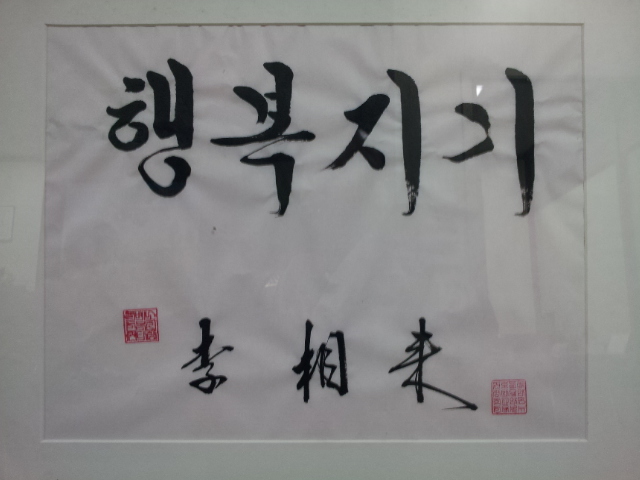 행복지기
李相来